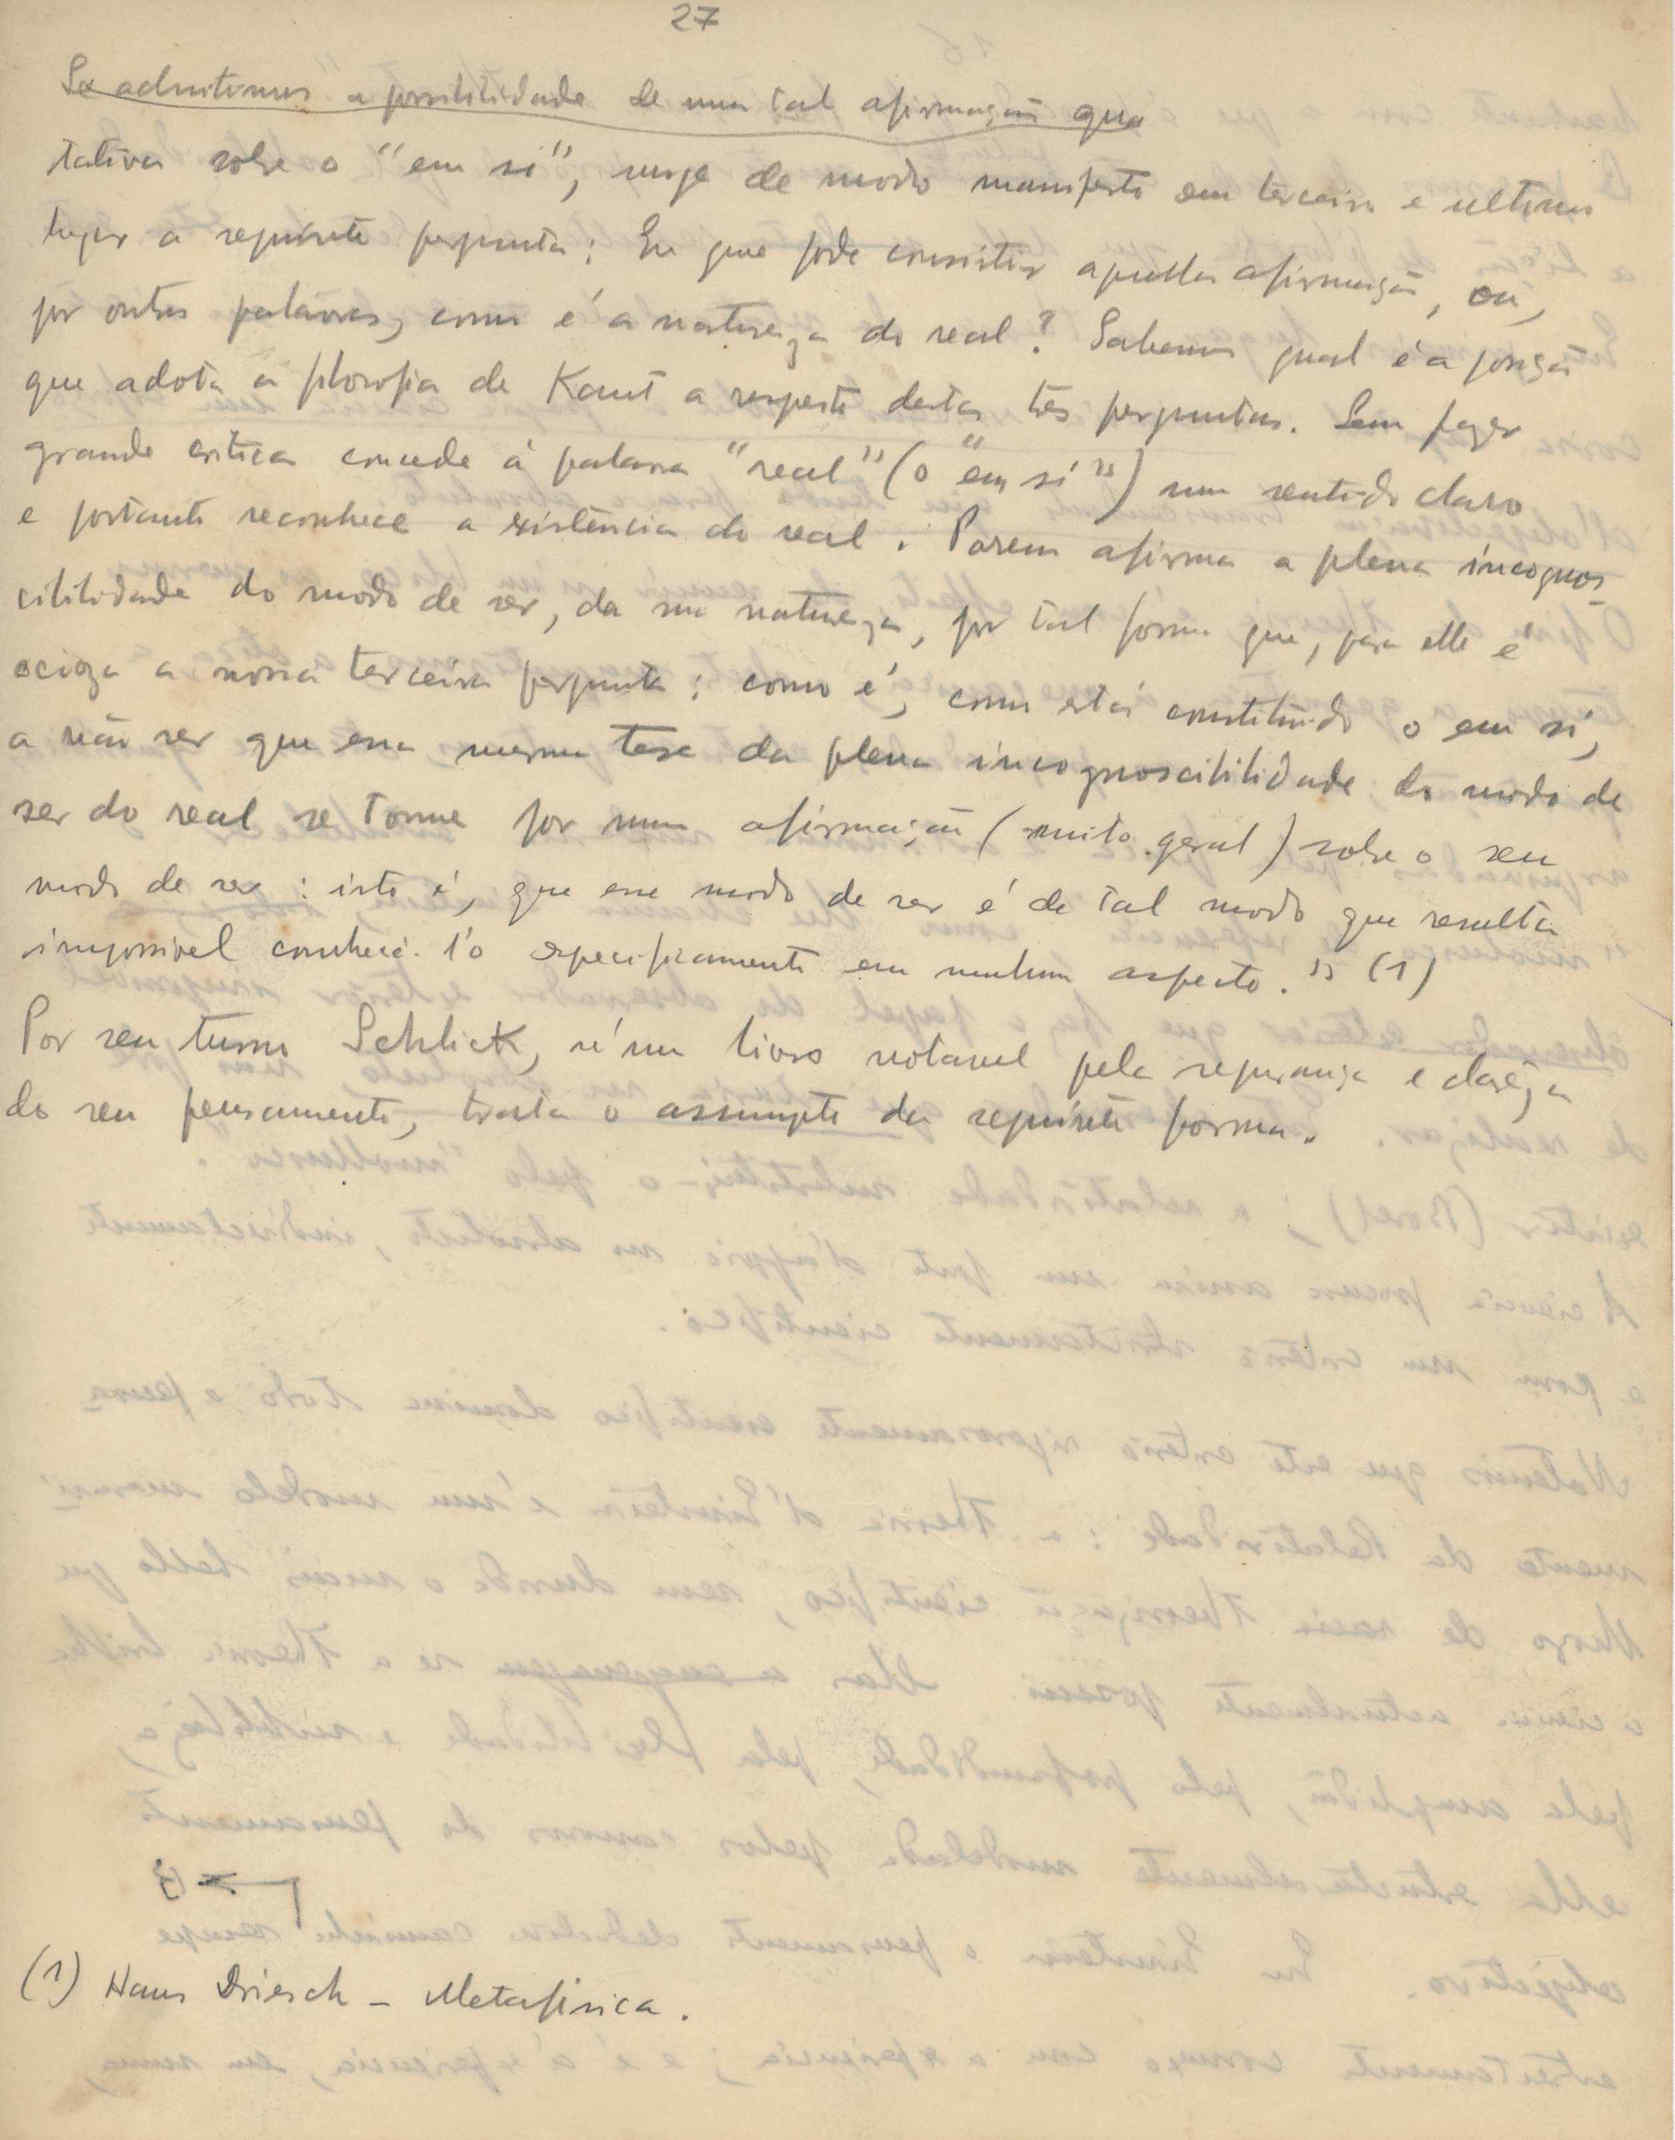 27
Se admitimos a possibilidade de uma tal afirmação qua
tativa sobre o "em si", surge de modo manifesto em terceiro e ultimo
lugar a seguinte pergunta: Em que pode consistir aquella afirmação, ou,
por outras palavras, como é a natureza do real? Sabemos qual é a posição
que adota a filosofia de Kant a respeito destas tês perguntas. Sem fazer
grande critica concede á palavra "real" (o "em si") um sentido claro
e portanto reconhece a existência do real. Porem afirma a plena incognos
cibilidade do modo de ser, da sua natureza, por tal forma que, para elle é
ocioza a nossa terceira pergunta: como é, como está constituido o em si,
a não ser que essa mesma tese da plena incognoscibilidade do modo de
ser do real se tome por uma afirmação (muito geral) sobre o seu
modo de ser: isto é, que esse modo de ser é de tal modo que resulta
impossivel conhecê-l'o especificamente em nenhum aspecto." (1)
Por seu turno Schlick, n'um livro notavel pela segurança e clarêza
do seu pensamento, trata o assumpto da seguinte forma.
(1) Hans Driesch - Metafisica.